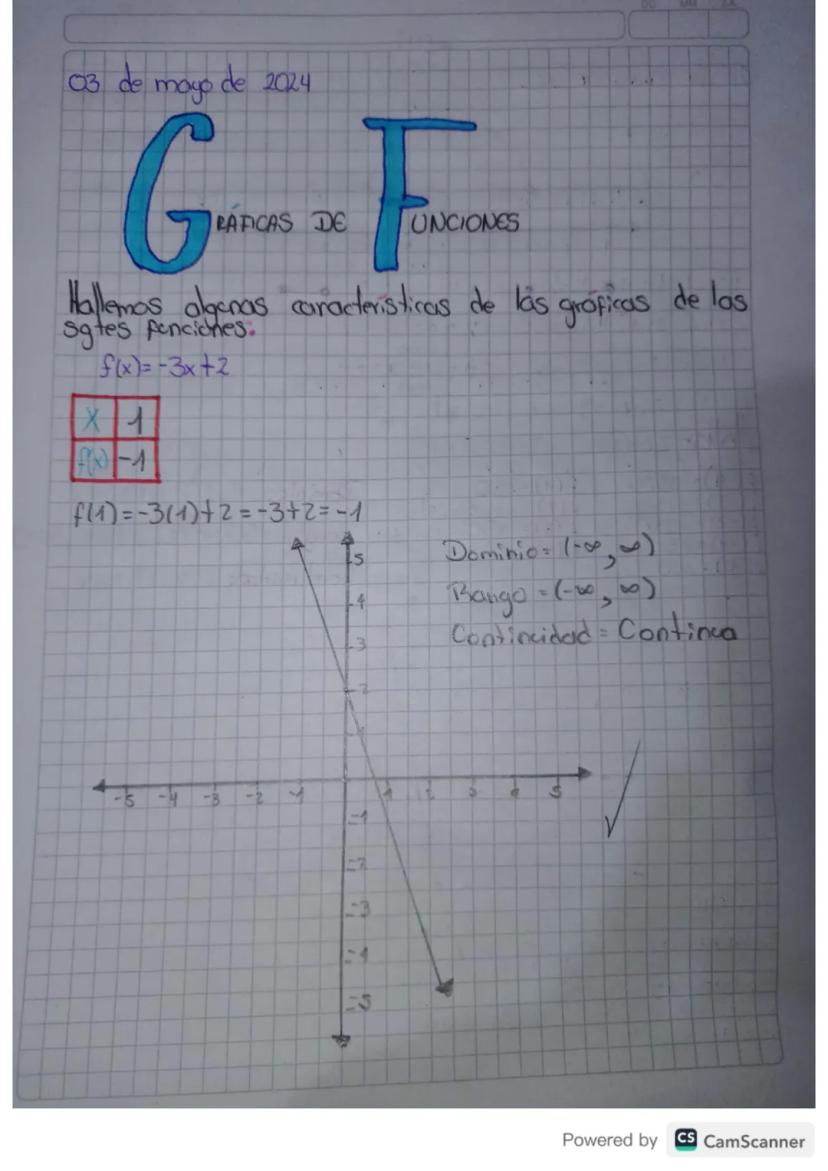 03 de mayo de 2024
GRÁFICAS DE FUNCIONES
Hallemos algunas características de las gráficas de las
sgtes funciones:
f(x)=-3x+2
X 1
f(x) -1
f(1)=-3(1)+2=-3+2=-1
Dominio=(-∞,∞)
Rango=(-∞,∞)
Continuidad=Continua
5
4
3
2
1
-5 -4 -3 -2 -1 1 2 3 4 5
-1
-2
-3
-4
-5
Powered by CS CamScanner